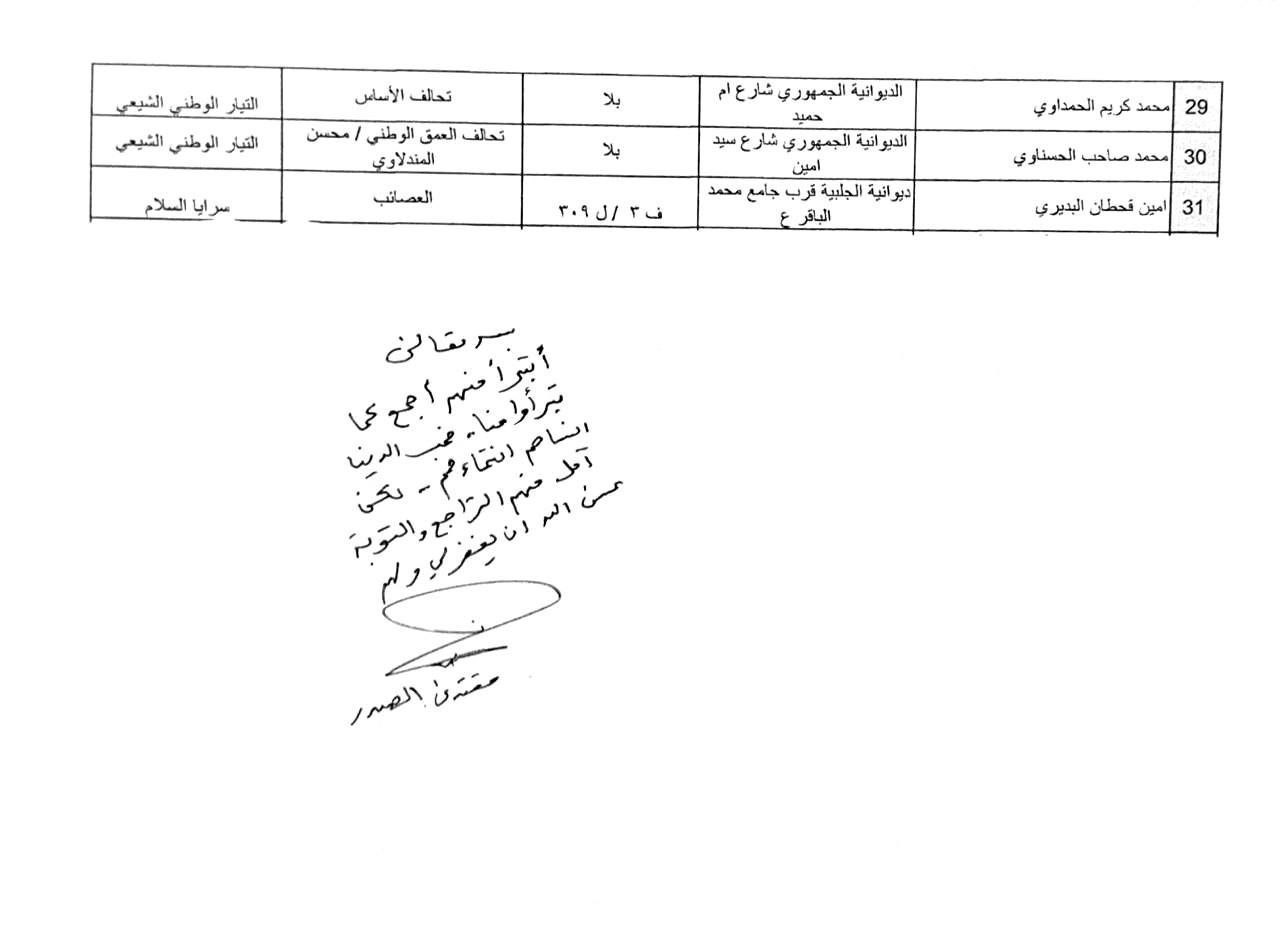 29 محمد كريم الحمداوي الديوانية الجمهوري شارع ام حميد بلا تحالف الأساس التيار الوطني الشيعي
30 محمد صاحب الحسناوي الديوانية الجمهوري شارع سيد امين بلا تحالف العمق الوطني / محسن المندلاوي التيار الوطني الشيعي
31 امين قحطان البديري ديوانية الجلبية قرب جامع محمد الباقر ع ف ٣ / ل ٣٠٩ العصائب سرايا السلام
بسمه تعالى
أتبرأ منهم أجمع كما
يتبرأوا منا.. فحب الدنيا
انساهم انتماءهم .. لكني
آمل منهم التراجع والتوبة
عسى الله ان يغفر لي ولهم
مقتدى الصدر